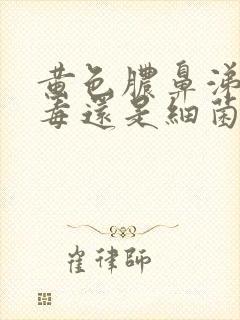 黃色膿鼻涕
毒還是細菌
崔律師